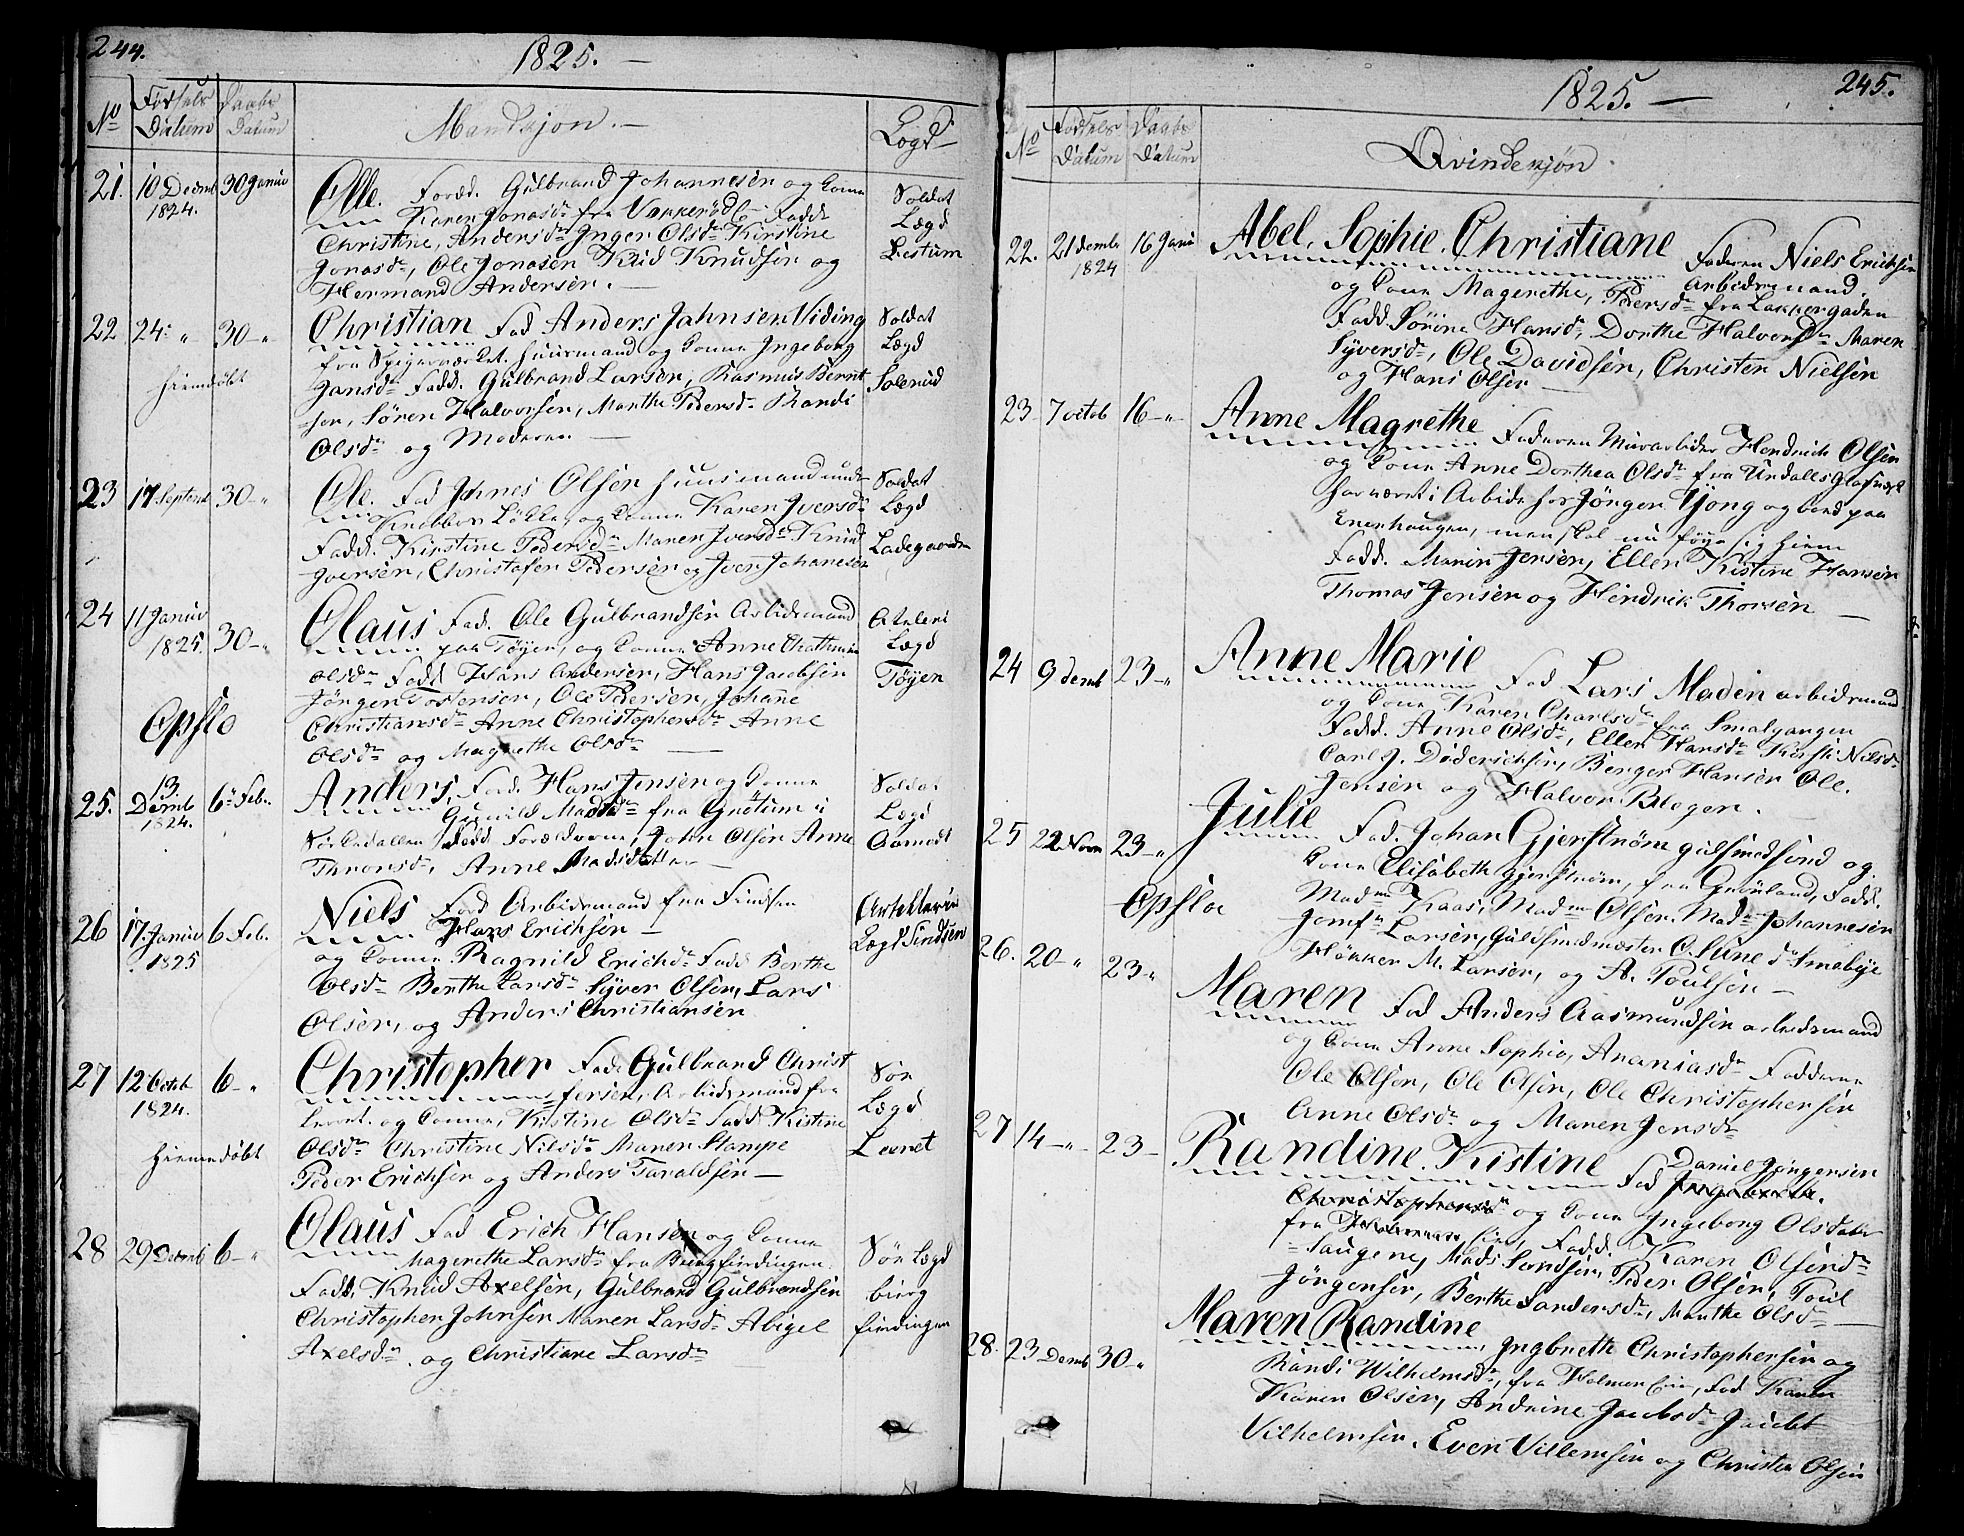 244.
1825. —
No
Fødsels Datum
Daabs Datum
Mandkjøn. —
Lægd
21. 10 Decmb 1824. 30 Januv
Olle. Foræd. Gulbrand Johannesen og Kone
Karen Jonasdr fra Vækkerød Fadd.
Christine, Andersdr Inger Olsdr Kirstine
Jonasdr, Ole Jonasen Knud Knudsen og
Hermand Andersen. —
Soldat
Lægd
Lestum
22 24 " 30 — "
hiemdøbt
Christian Fad Anders Jahnsen Viding
fra Spigerværket. huusmand og Kone Ingeborg
Jansdr Fadd. Gulbrand Larsen, Rasmus Bernt
-sen, Søren Halvorsen, Marthe Pedersdr Randi
Olsdr og Moderen —
Soldat
Lægd
Solerud
23 17 Septembr 30 — "
Ole. Fad Johnes Olsen huusmand under
Løkke, og Kone Karen Iversdr
Fadd. Kirstine Pedersdr Maren Iversdr Knud
Iversen, Christofer Pedersen og Iver Johanesen
Soldat
Lægd
Ladegaarden
24 11 Januv 1825. 30 — "
Opslo
Olaus Fad. Ole Gulbrandsen Arbeidsmand
paa Tøyen, og Kone Anne Chathrine
Olsdr Fadd Hans Andersen, Hans Jacobsen
Jørgen Tostensen, Ole Pedersen, Johane
Christiansdr Anne Christophersdr Anne
Olsdr og Magrethe Olsdr —
Lægd
Tøyen
25. 13. Decmb 1824. 6te Feb.
Anders. Fad. Hans Jensen og Kone
Gunild Madsdr fra Grøtum i
Sørkedallen Fadd Forældrene, John Olsen Anne
Thronsdr, Anne Madsdatter —
Soldat
Lægd
Aamodt
26 17. Januv 1825 6 Feb.
Niels Fad Arbidsmand fra Sindsen
Hans Erichsen —
og Konne Ragnild Erichdr Fadd Berthe
Olsdr Berthe Larsdr Syver Olsen, Lars
Olsen, og Anders Christiansen
Lægd Sindsen
27 12 Octob 1824. 6 — "
hiemmedøbt
Christopher Fad. Gulbrand Christ
=fersen, Arbidsmand fra
Leeret. og Konne, Kristine Olsdr Fadd Kistine
Olsdr Christine Nilsdr Maren Stampe
Peder Erichsen og Anders Taraldsen —
Sør
Lægd
Leeret
28 29 Decmb 6 — "
Olaus Fad Erich Hansen og Konne
Magerethe Larsdr fra Biergfindingen
Fadd. Knud Axelsen, Gulbrand Gulbrandsen
Christopher Johnsen Maren Larsdr Abigel
Axelsdr. og Christiane Larsdr
Sør Lægd
bierg
findingen
1825. —
245.
No
Fødsels Datum
Daabs Datum
Qvindekjøn.
22. 21 Decmb 1824 16 Janu
Abel, Sophie. Christiane Faderen Niels Ericksen
arbidsmand.
og Kone Magerethe, Pedersdr fra Lakkergaden
Fadd. Sørine Hansdr, Dorthe Halvorsdr Maren
Syversdr, Ole Davidsen, Christen Nielsen
og Hans Olsen —
23. 7 octob 16 — "
Anne Magrethe Faderen Murarbider Hendrich Olsen
og Kone Anne Dorthea Olsdr fra Urdalls Glasværk
har været i Arbide hos Jørgen Young og boed paa
Enerhaugen, men skal nu føye sig hiem
Fadd. Maren Jensen, Ellen Kistine Hansen
Thomas Jensen og Hendrik Thorsen —
24 9 Decmb 23 — "
Anne Marie Fad Lars Maden arbidsmand
og Kone Karen Charlsdr fra Smalgangen
Fadd. Anne Olsdr, Ellen Hansdr Kirsti Nilsdr
Carl J. Diderichsen, Berger Hansen Ole.
Jensen og Halvor Bleger.
25 22 Nov 23 — "
Opsloe
Julie Fad. Johan Gjerstrøm gulsmedsvend og
Kone Elisabeth Gjerstrøm, fra Grønland, Fadd.
Madme Kaas, Madme Olsen. Madme Johannesen
Jomfr Larsen, Guldsmedmester O. Lune dr Smebye
Høkker M. Larsen, og A. Poulsen —
26. 20 — " 23 "
Maren Fad Anders Aasmundsen arbidsmand
og Kone Anne Sophia, Ananiasdr Fadderne
Ole Olsen, Ole Olsen, Ole Christophersen
Anne Olsdr og Maren Jensdr
27 14 — " 23 —
Randine. Kistine Fad Daniel Jørgensen
og Kone Ingeborg Olsdatter
fra Fadd. Karen Olsendr
=haugene, Mads Sandsen, Peder Olsen, Poul
Jørgensen, Berthe Sandersdr, Marthe Olsdr —
28. 23 Decmb 30 — "
Maren Randine, Ingbreth Christophersen og
Randi Wilhelmsdr, fra Holmen Fad Karen
Karen Olsen, Andrine Jacobsdr Jacob
Vilhelmsen. Even Villemsen og Christen Olsen